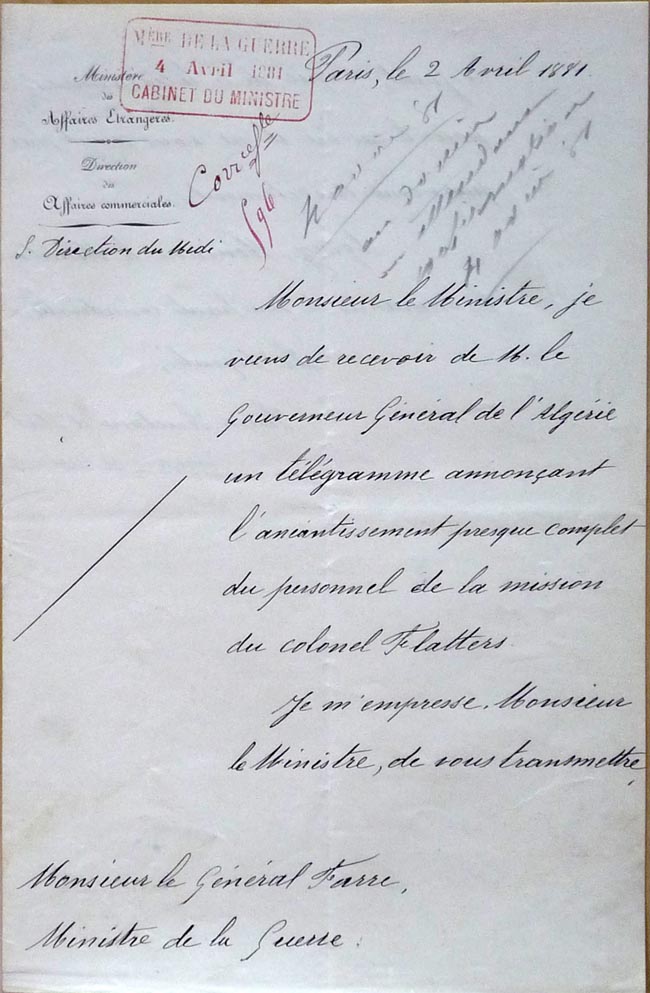 Mère DE LA GUERRE
4 Avril 1881
CABINET DU MINISTRE
Ministère
des
Affaires Etrangères.
Direction
des
Affaires commerciales.
S. Direction du Midi
Paris, le 2 Avril 1881.
596
Monsieur le Ministre, je
viens de recevoir de M. le
Gouverneur Général de l'Algérie
un télégramme annonçant
l'anéantissement presque complet
du personnel de la mission
du colonel Flatters.
Je m'empresse, Monsieur
le Ministre, de vous transmettre,
Monsieur le Général Farre,
Ministre de la Guerre.